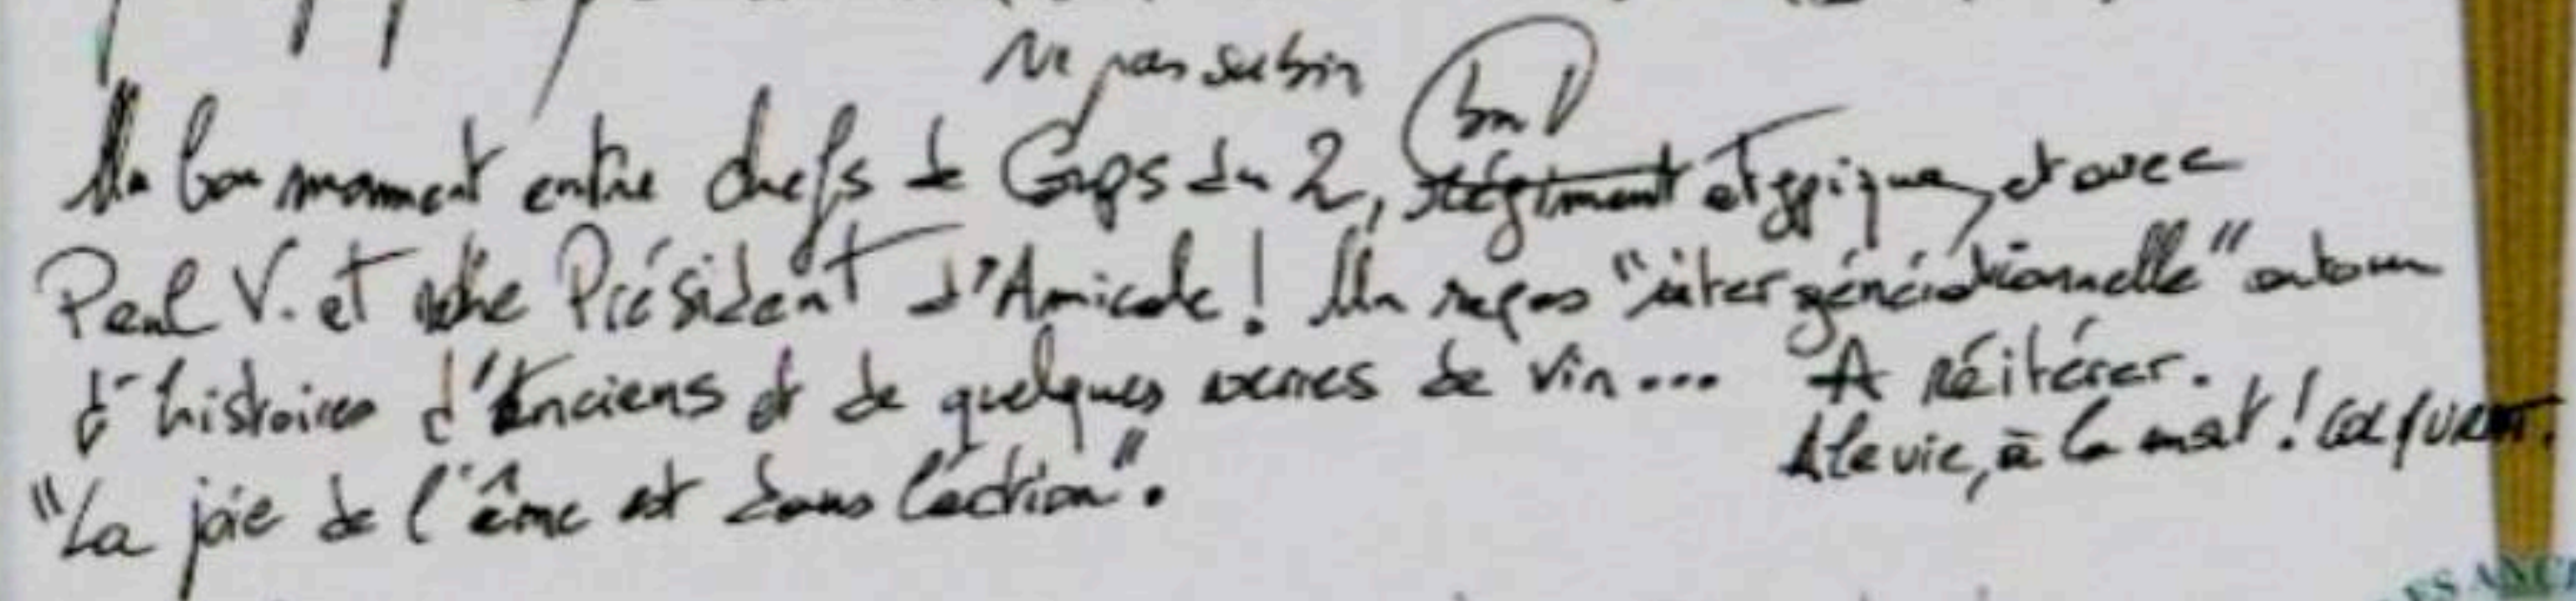 Ne pas subir
Un bon moment entre chefs de Corps du 2, régiment atypique, et avec
Paul V. et notre Président d'Amicale! Un repas "intergénérationnelle" autour
d'histoires d'Anciens et de quelques verres de vin... A réitérer.
A la vie, à la mort! COL
"La joie de l'âme est dans l'action".
ES ANC